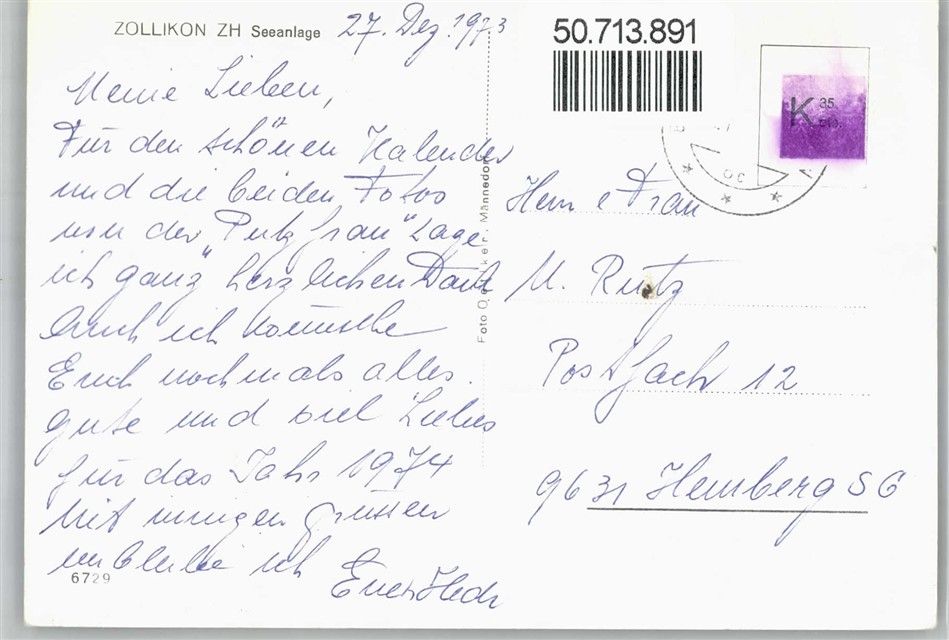 ZOLLIKON ZH Seeanlage
27. Dez. 1973
Meine Lieben,
Für den schönen Kalender
und die beiden Fotos
von der "Putzfrau" sage
ich ganz herzlichen Dank
Auch ich wünsche
Euch nochmals alles
gute und viel Liebes
für das Jahr 1974
Mit innigen Grüssen
verbleibe ich
6729
Foto
Männedorf
50.713.891
K 35
Herr e Frau
M. Rutz
Postfach 12
9631 Hemberg SG